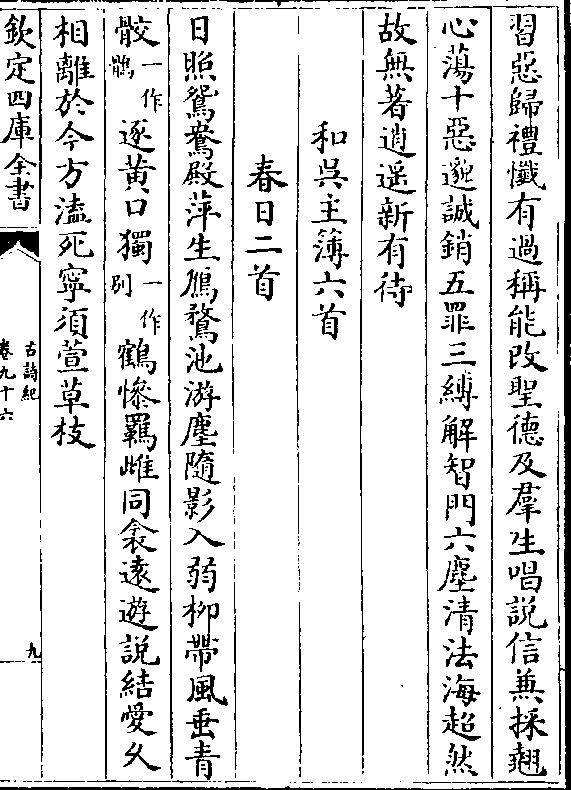 習惡歸禮懺有過稱能改聖德及羣生唱説信兼採翹
心蕩十惡邈誠銷五罪三縛解智門六塵清法海超然
故無著逍遥新有待
和吳主簿六首
春日二首
日照鴛鴦殿萍生鴈鶩池游塵隨影入弱柳帶風垂青
骹一作鶻逐黄口獨一作別鶴慘羈雌同衾遠遊説結愛久
相離於今方溘死寧須萱草枝
欽定四庫全書
古詩紀
卷九十六
九